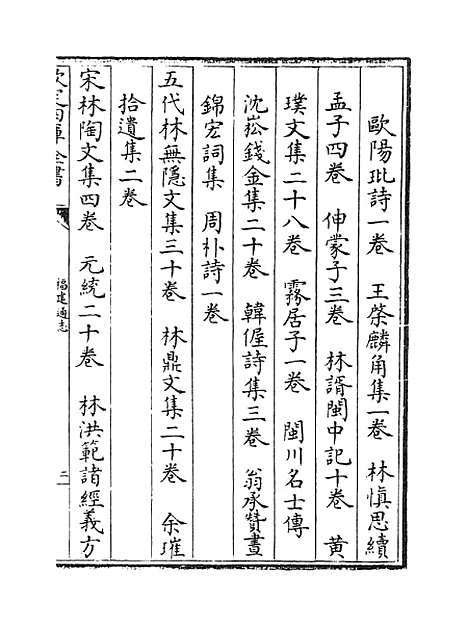 歐陽玭詩一卷　王棨麟角集一卷　林慎思續
孟子四卷　伸蒙子三卷　林諝閩中記十卷　黄
璞文集二十八卷　霧居子一卷　閩川名士傳
沈崧錢金集二十卷　韓偓詩集三卷　翁承贊晝
錦宏詞集　周朴詩一卷
五代林無隱文集三十卷　林鼎文集二十卷　余璀
拾遺集二卷
宋林陶文集四卷　元統二十卷　林洪範諸經義方
欽定四庫全書
福建通志
二